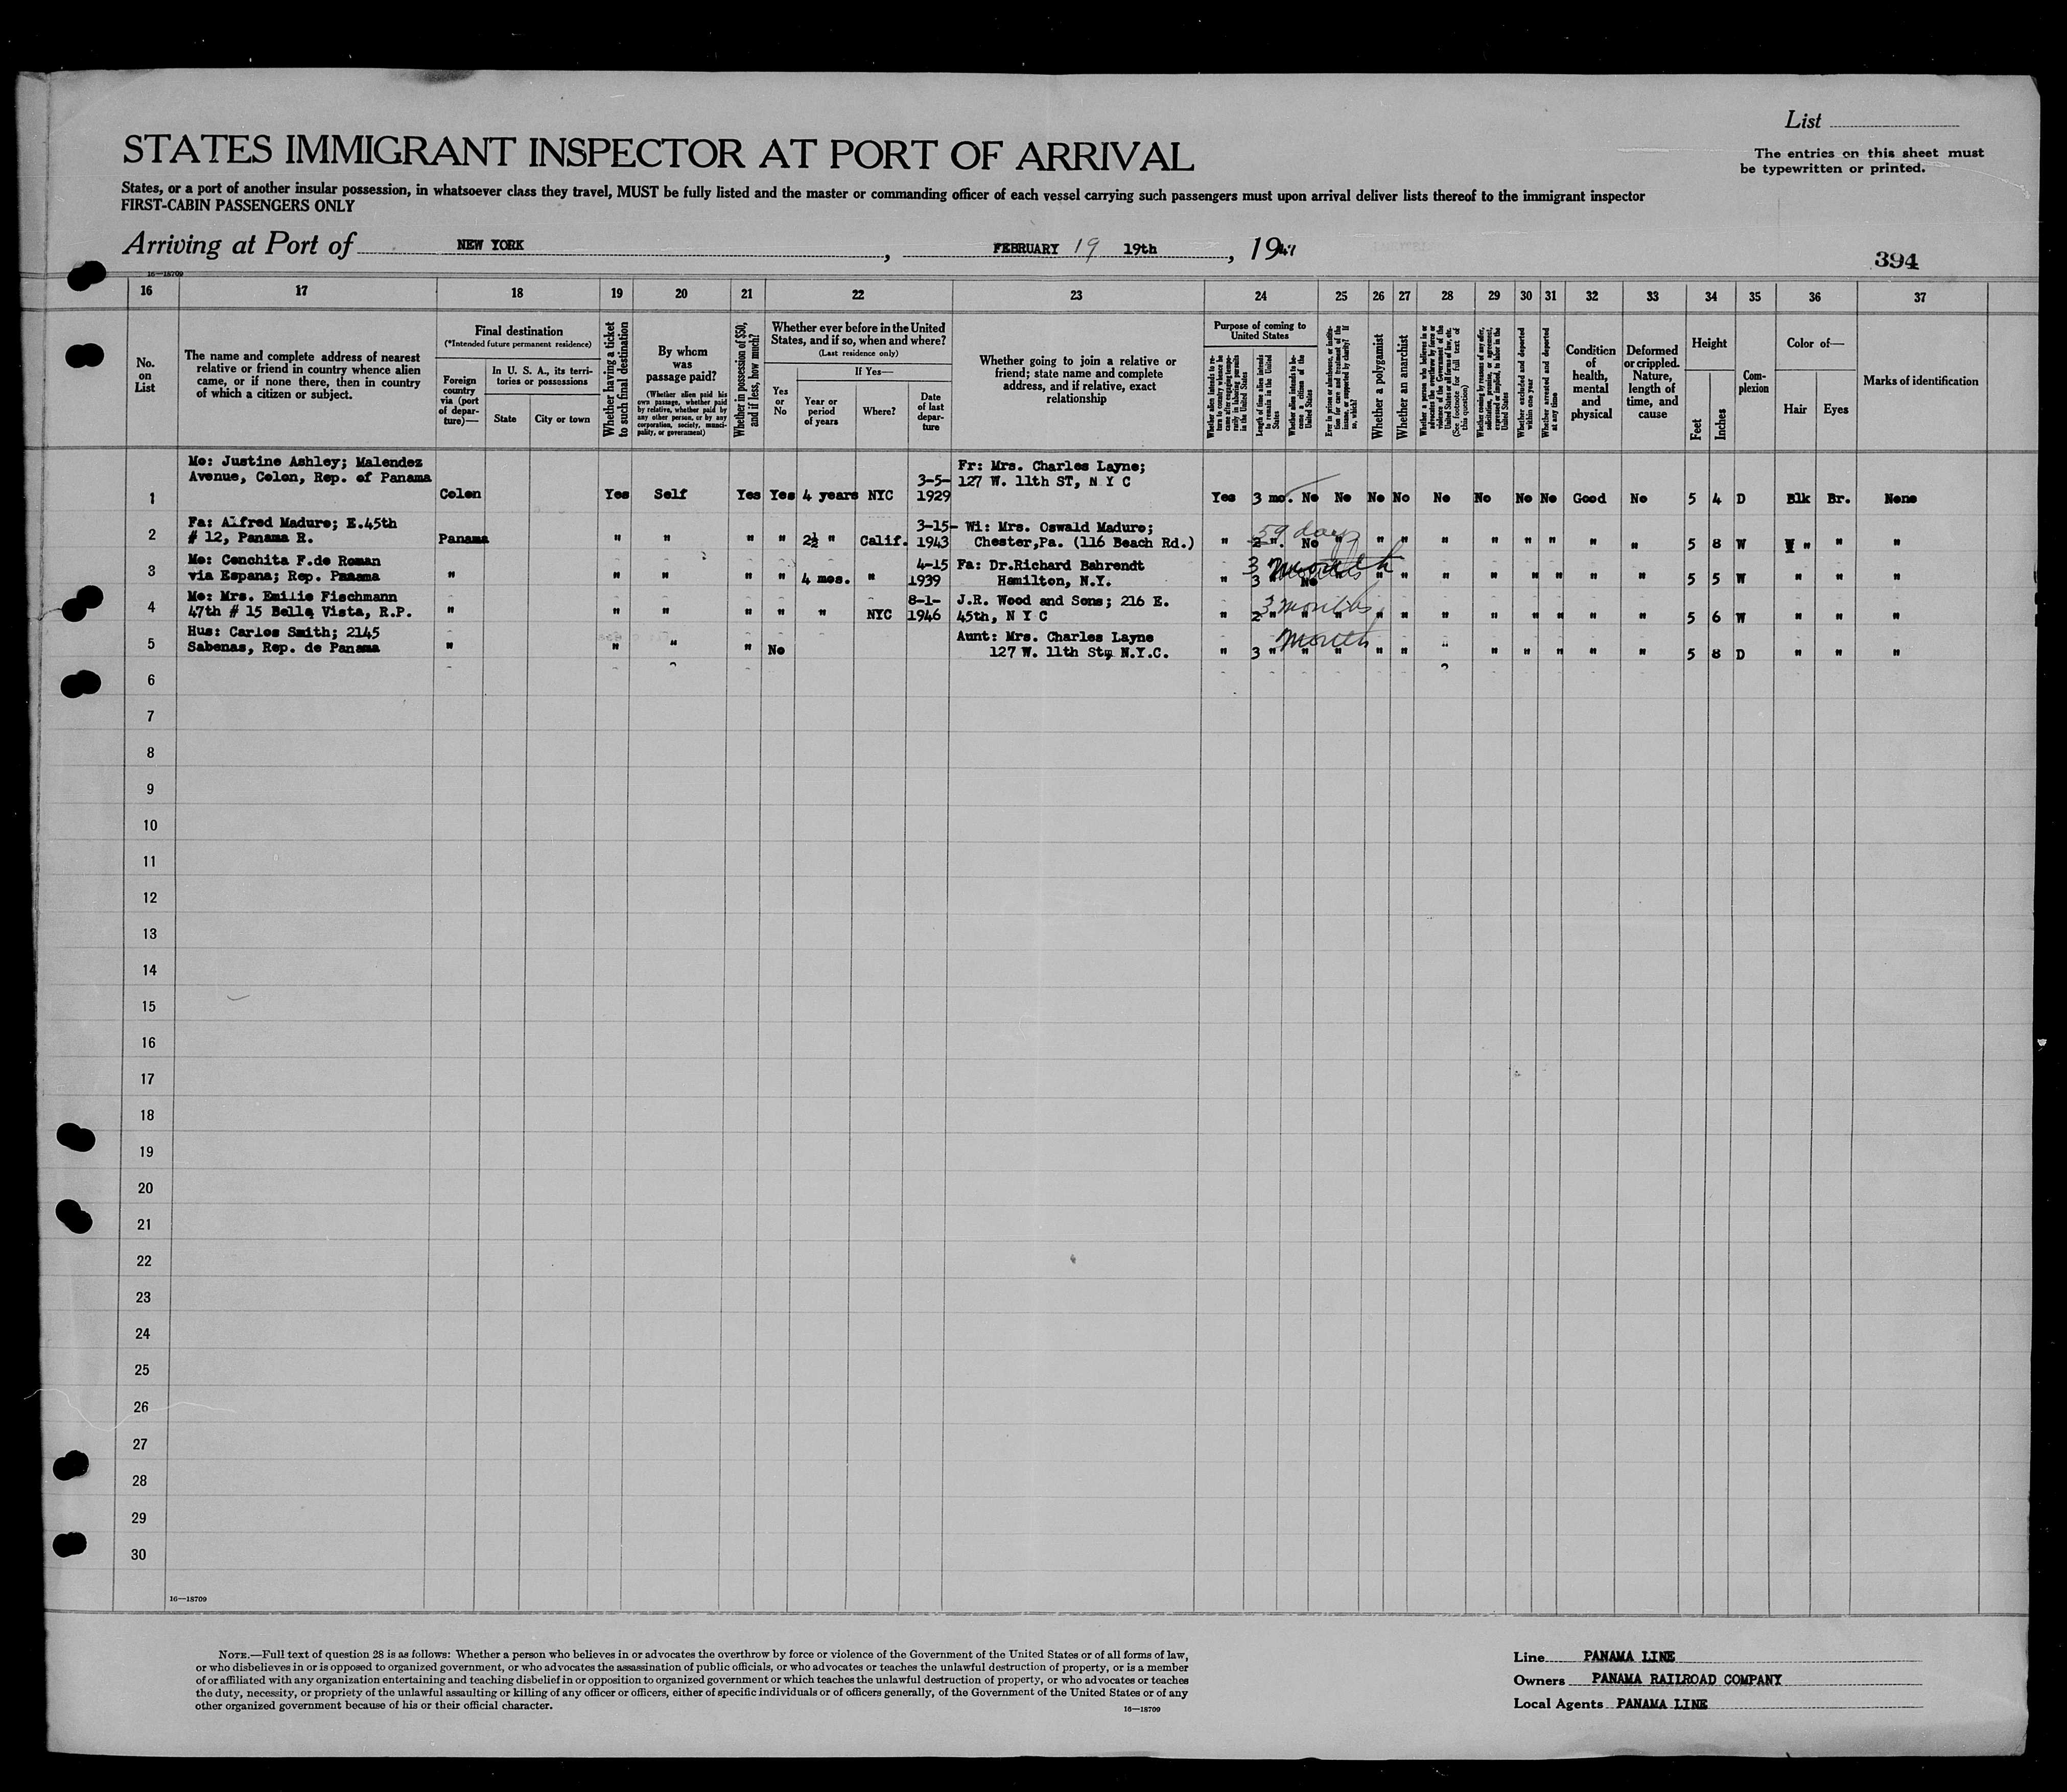 List
STATES IMMIGRANT INSPECTOR AT PORT OF ARRIVAL
The entries on this sheet must
be typewritten or printed.
States, or a port of another insular possession, in whatsoever class they travel, MUST be fully listed and the master or commanding officer of each vessel carrying such passengers must upon arrival deliver lists thereof to the immigrant inspector
FIRST-CABIN PASSENGERS ONLY
Arriving at Port of NEW YORK, FEBRUARY 19 19th, 1947
394
16—18709
16 17 18 19 20 21 22 23 24 25 26 27 28 29 30 31 32 33 34 35 36 37
No.
on
List
The name and complete address of nearest
relative or friend in country whence alien
came, or if none there, then in country
of which a citizen or subject.
Final destination
(*Intended future permanent residence)
Foreign
country
via (port
of depar-
ture)—
In U. S. A., its terri-
tories or possessions
State
City or town
Whether having a ticket
to such final destination
By whom
was
passage paid?
(Whether alien paid his
own passage, whether paid
by relative, whether paid by
any other person, or by any
corporation, society, munici-
pality, or government)
Whether in possession of $50,
and if less, how much?
Whether ever before in the United
States, and if so, when and where?
(Last residence only)
Yes
or
No
If Yes—
Year or
period
of years
Where?
Date
of last
depar-
ture
Whether going to join a relative or
friend; state name and complete
address, and if relative, exact
relationship
Purpose of coming to
United States
Whether alien intends to re-
turn to country whence he
came after engaging tempo-
rarily in laboring pursuits
in the United States
Length of time alien intends
to remain in the United
States
Whether alien intends to be-
come a citizen of the
United States
Ever in prison or almshouse, or institu-
tion for care and treatment of the
insane, or supported by charity? If
so, which?
Whether a polygamist
Whether an anarchist
Whether a person who believes in or
advocates the overthrow by force or
violence of the Government of the
United States or all forms of law, etc.
(See footnote for full text of
this question)
Whether coming by reason of any offer,
solicitation, promise, or agreement,
expressed or implied, to labor in the
United States
Whether excluded and deported
within one year
Whether arrested and deported
at any time
Condition
of
health,
mental
and
physical
Deformed
or crippled.
Nature,
length of
time, and
cause
Height
Feet
Inches
Com-
plexion
Color of—
Hair
Eyes
Marks of identification
Mo: Justine Ashley; Malendez
Avenue, Colon, Rep. of Panama
Fr: Mrs. Charles Layne;
127 W. 11th ST, N Y C
3-5-
1 Colon Yes Self Yes Yes 4 years NYC 1929 Yes 3 mo. No No No No No No No No Good No 5 4 D Blk Br. None
Fa: Alfred Maduro; E.45th 3-15- Wi: Mrs. Oswald Maduro;
59 days
2 # 12, Panama R. Panama " " " " 2½ " Calif. 1943 Chester,Pa. (116 Beach Rd.) " 2 ". No " " " " " " " " " 5 8 W " " "
Mo: Conchita F.de Roman 4-15 Fa: Dr.Richard Bahrendt
3 month
3 via Espana; Rep. Panama " " " " " 4 mos. " 1939 Hamilton, N.Y. " 3 " No " " " " " " " " " 5 5 W " " "
Mo: Mrs. Emilie Fischmann 8-1- J.R. Wood and Sons; 216 E.
3 months
4 47th # 15 Bella Vista, R.P. " " " " " " NYC 1946 45th, N Y C " 2 " " " " " " " " " " " 5 6 W " " "
Hus: Carlos Smith; 2145 Aunt: Mrs. Charles Layne
month
5 Sabanas, Rep. de Panama " " " " No 127 W. 11th St, N.Y.C. " 3 " " " " " " " " " " " 5 8 D " " "
6
7
8
9
10
11
12
13
14
15
16
17
18
19
20
21
22
23
24
25
26
27
28
29
30
16—18709
NOTE.—Full text of question 28 is as follows: Whether a person who believes in or advocates the overthrow by force or violence of the Government of the United States or of all forms of law,
or who disbelieves in or is opposed to organized government, or who advocates the assassination of public officials, or who advocates or teaches the unlawful destruction of property, or is a member
of or affiliated with any organization entertaining and teaching disbelief in or opposition to organized government or which teaches the unlawful destruction of property, or who advocates or teaches
the duty, necessity, or propriety of the unlawful assaulting or killing of any officer or officers, either of specific individuals or of officers generally, of the Government of the United States or of any
other organized government because of his or their official character.
16—18709
Line PANAMA LINE
Owners PANAMA RAILROAD COMPANY
Local Agents PANAMA LINE